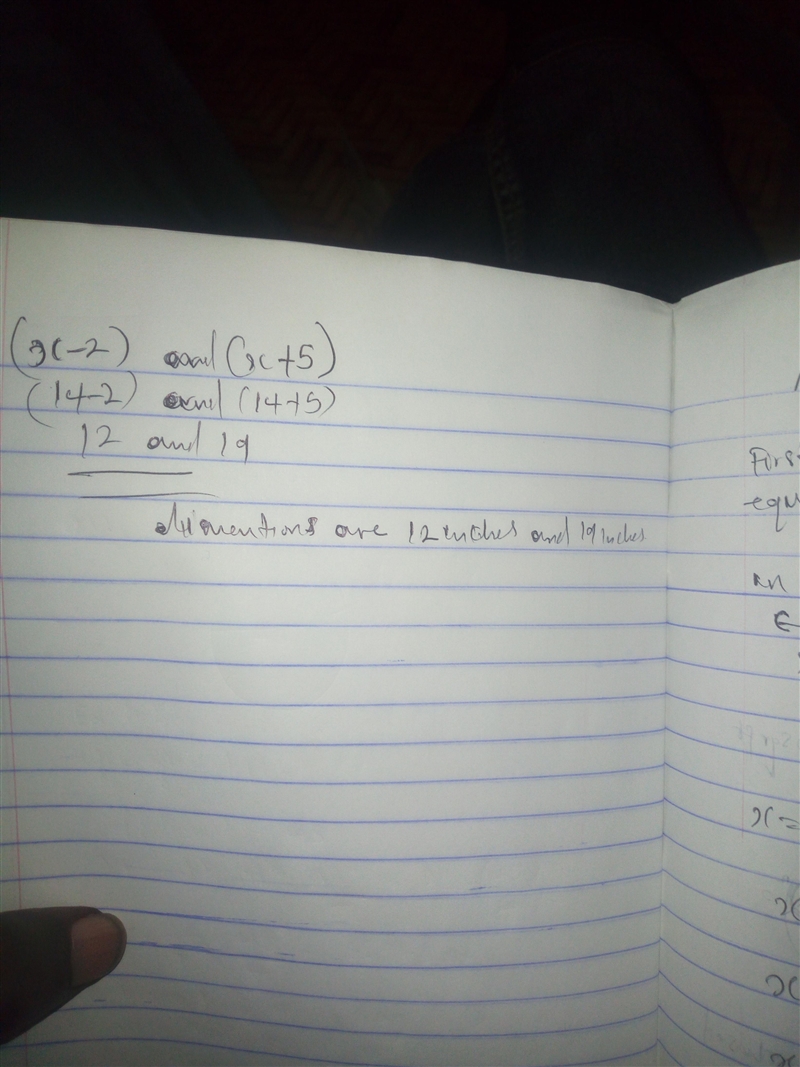 (x-2) and (x+5)
(14-2) and (14+5)
12 and 19
dimentions are 12 inches and 19 inches
Firs
equ
an
x=
x
x
x